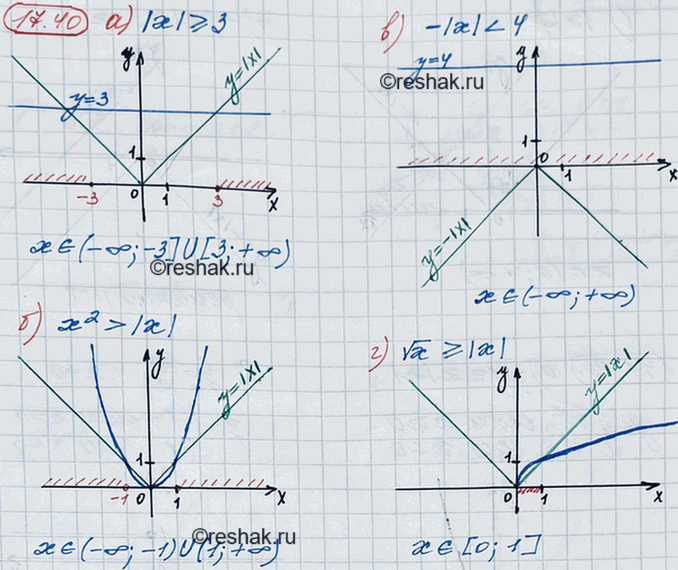 17.40 а) |x| ≥ 3
y
y=|x|
y=3
1
-3 0 1 3 x
x ∈ (-∞; -3] ∪ [3; +∞)
©reshak.ru
в) -|x| < 4
y=4
y
©reshak.ru
1
0 1 x
y=-|x|
x ∈ (-∞; +∞)
б) x² > |x|
y
y=|x|
1
-1 0 1 x
©reshak.ru
x ∈ (-∞; -1) ∪ (1; +∞)
г) √x ≥ |x|
y
y=|x|
1
0 1 x
x ∈ [0; 1]